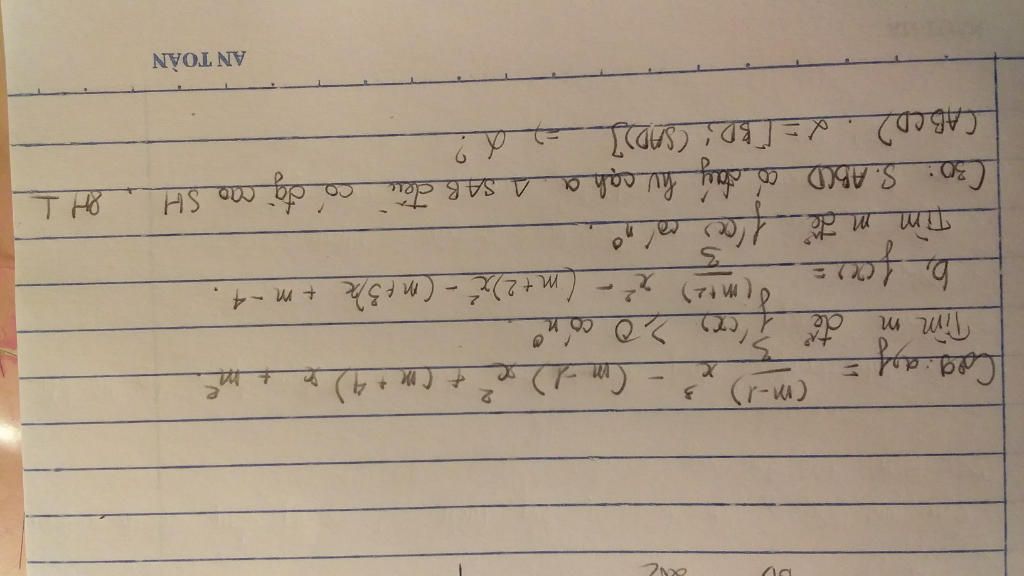 C29: a, f = (m-1)/3 x³ - (m-1)x² + (m+4)x + m².
Tìm m để f'(x) ≥ 0 có n⁰.
b, f(x) = (m+2)/3 x² - (m+2)x² - (m+3)x + m - 1.
Tìm m để f'(x) có n⁰.
C30: S.ABCD có đáy hv cạnh a. Δ SAB đều có đg cao SH, SH ⊥
(ABCD). α = [BD; (SAD)] ⇒ α?
AN TOÀN